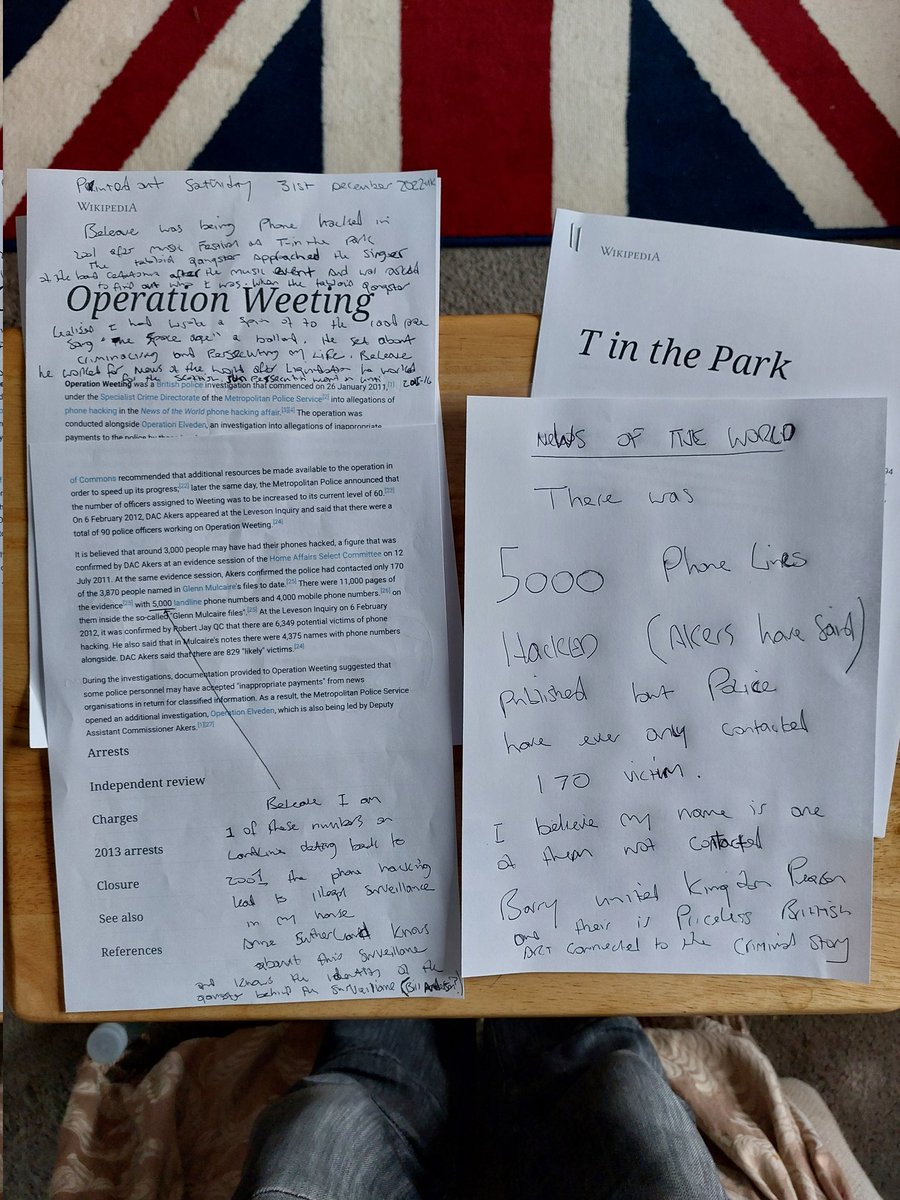 Printed out Saturday 31st December 2022 UK
WIKIPEDIA
Beleave was being Phone hacked in
2001 after music Festival at T-in the Park
The tabloid gangster approached the singer
at the band after the music event and was asked
to find out who I was. When the tabloid gangster
Operation Weeting
realised I had wrote a spin of to the
song "The Space age" a ballad. He set about
criminalising and Persecuting my Life. Beleave
he worked for News of the World after Liquidation he worked
for the Scottish Sun Persecution went on until 2015-16
Operation Weeting was a British police investigation that commenced on 26 January 2011,[1]
under the Specialist Crime Directorate of the Metropolitan Police Service[2] into allegations of
phone hacking in the News of the World phone hacking affair.[3][4] The operation was
conducted alongside Operation Elveden, an investigation into allegations of inappropriate
payments to the police by
of Commons recommended that additional resources be made available to the operation in
order to speed up its progress;[22] later the same day, the Metropolitan Police announced that
the number of officers assigned to Weeting was to be increased to its current level of 60.[23]
On 6 February 2012, DAC Akers appeared at the Leveson Inquiry and said that there were a
total of 90 police officers working on Operation Weeting.[24]
It is believed that around 3,000 people may have had their phones hacked, a figure that was
confirmed by DAC Akers at an evidence session of the Home Affairs Select Committee on 12
July 2011. At the same evidence session, Akers confirmed the police had contacted only 170
of the 3,870 people named in Glenn Mulcaire's files to date.[25] There were 11,000 pages of
the evidence[25] with 5,000 landline phone numbers and 4,000 mobile phone numbers,[26] on
them inside the so-called "Glenn Mulcaire files".[25] At the Leveson Inquiry on 6 February
2012, it was confirmed by Robert Jay QC that there are 6,349 potential victims of phone
hacking. He also said that in Mulcaire's notes there were 4,375 names with phone numbers
alongside. DAC Akers said that there are 829 "likely" victims.[24]
During the investigations, documentation provided to Operation Weeting suggested that
some police personnel may have accepted "inappropriate payments" from news
organisations in return for classified information. As a result, the Metropolitan Police Service
opened an additional investigation, Operation Elveden, which is also being led by Deputy
Assistant Commissioner Akers.[1][27]
Arrests
Independent review
Charges
2013 arrests
Closure
See also
References
Beleave I am
1 of these numbers on
Landline dating back to
2001 the phone hacking
lead to illegal Surveillance
in my house
Anne Sutherland Knows
about this Surveillance
and Knows the identity of the
gangster behind the Surveillance
WIKIPEDIA
T in the Park
NEWS OF THE WORLD
There was
5000 Phone Lines
Hacked (Akers have Said)
published but Police
have ever only contacted
170 victim.
I believe my name is one
of them not contacted
Barry United Kingdom Pearson
and their is Priceless British
art connected to the Criminal Story